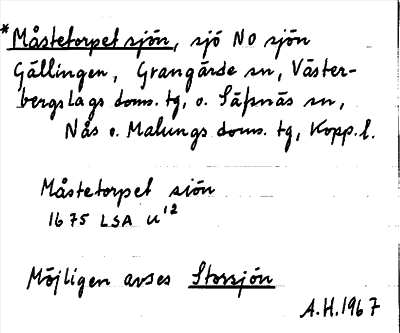 *Måstetorpet sjön, sjö NO sjön
Gällingen, Grangärde sn, Väster-
bergslags doms. tg, o. Säfsnäs sn,
Nås o. Malungs doms. tg, Kopp. l.
Måstetorpet sjön
1675 LSA U¹²
Möjligen avses Storsjön
A.H. 1967